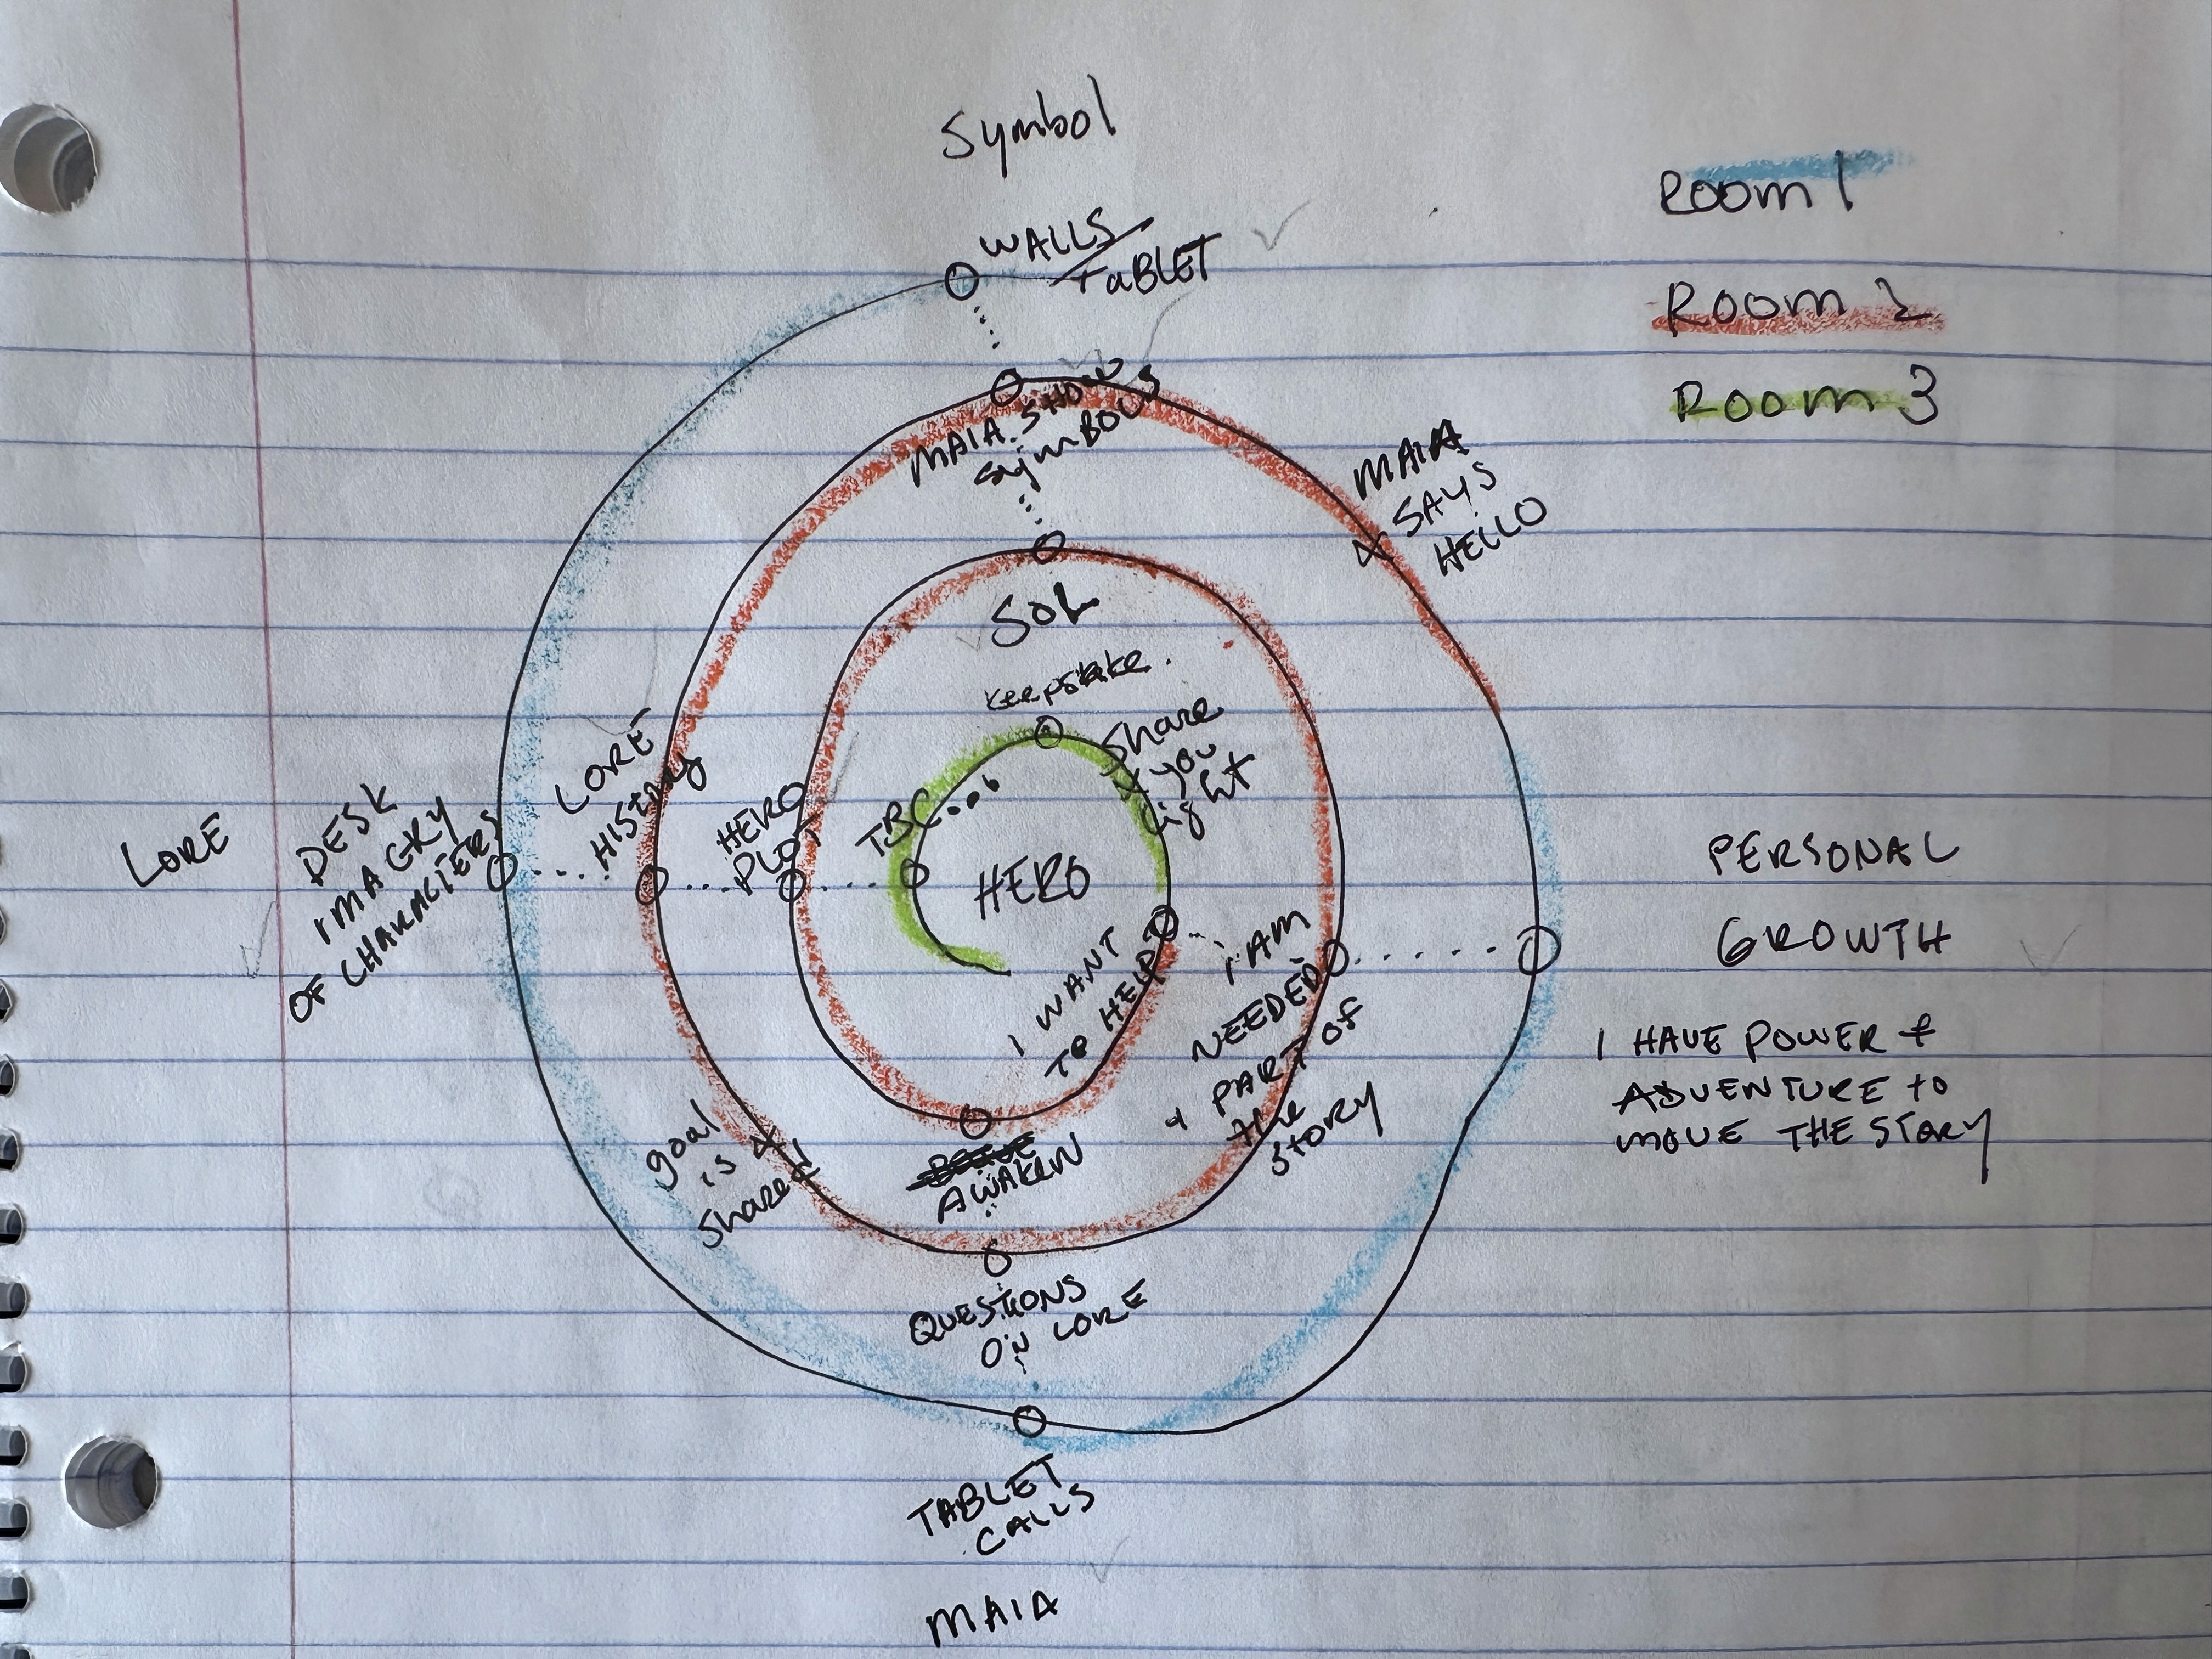 Symbol
WALLS/
TABLET
Room 1
Room 2
Room 3
MAIA SHOWS
SYMBOLS
MAIA
SAYS
HELLO
SOL
keepstake.
Share
you
light
LORE
DESK
IMAGRY
OF CHARACTERS
LORE
HISTORY
HERO
PLOT
TBC...
HERO
I WANT
TO HELP
I AM
NEEDED
+ PART OF
the
STORY
PERSONAL
GROWTH
I HAVE POWER +
ADVENTURE to
MOVE THE STORY
goal
is
share
AWAKEN
QUESTIONS
ON LORE
TABLET
CALLS
MAIA